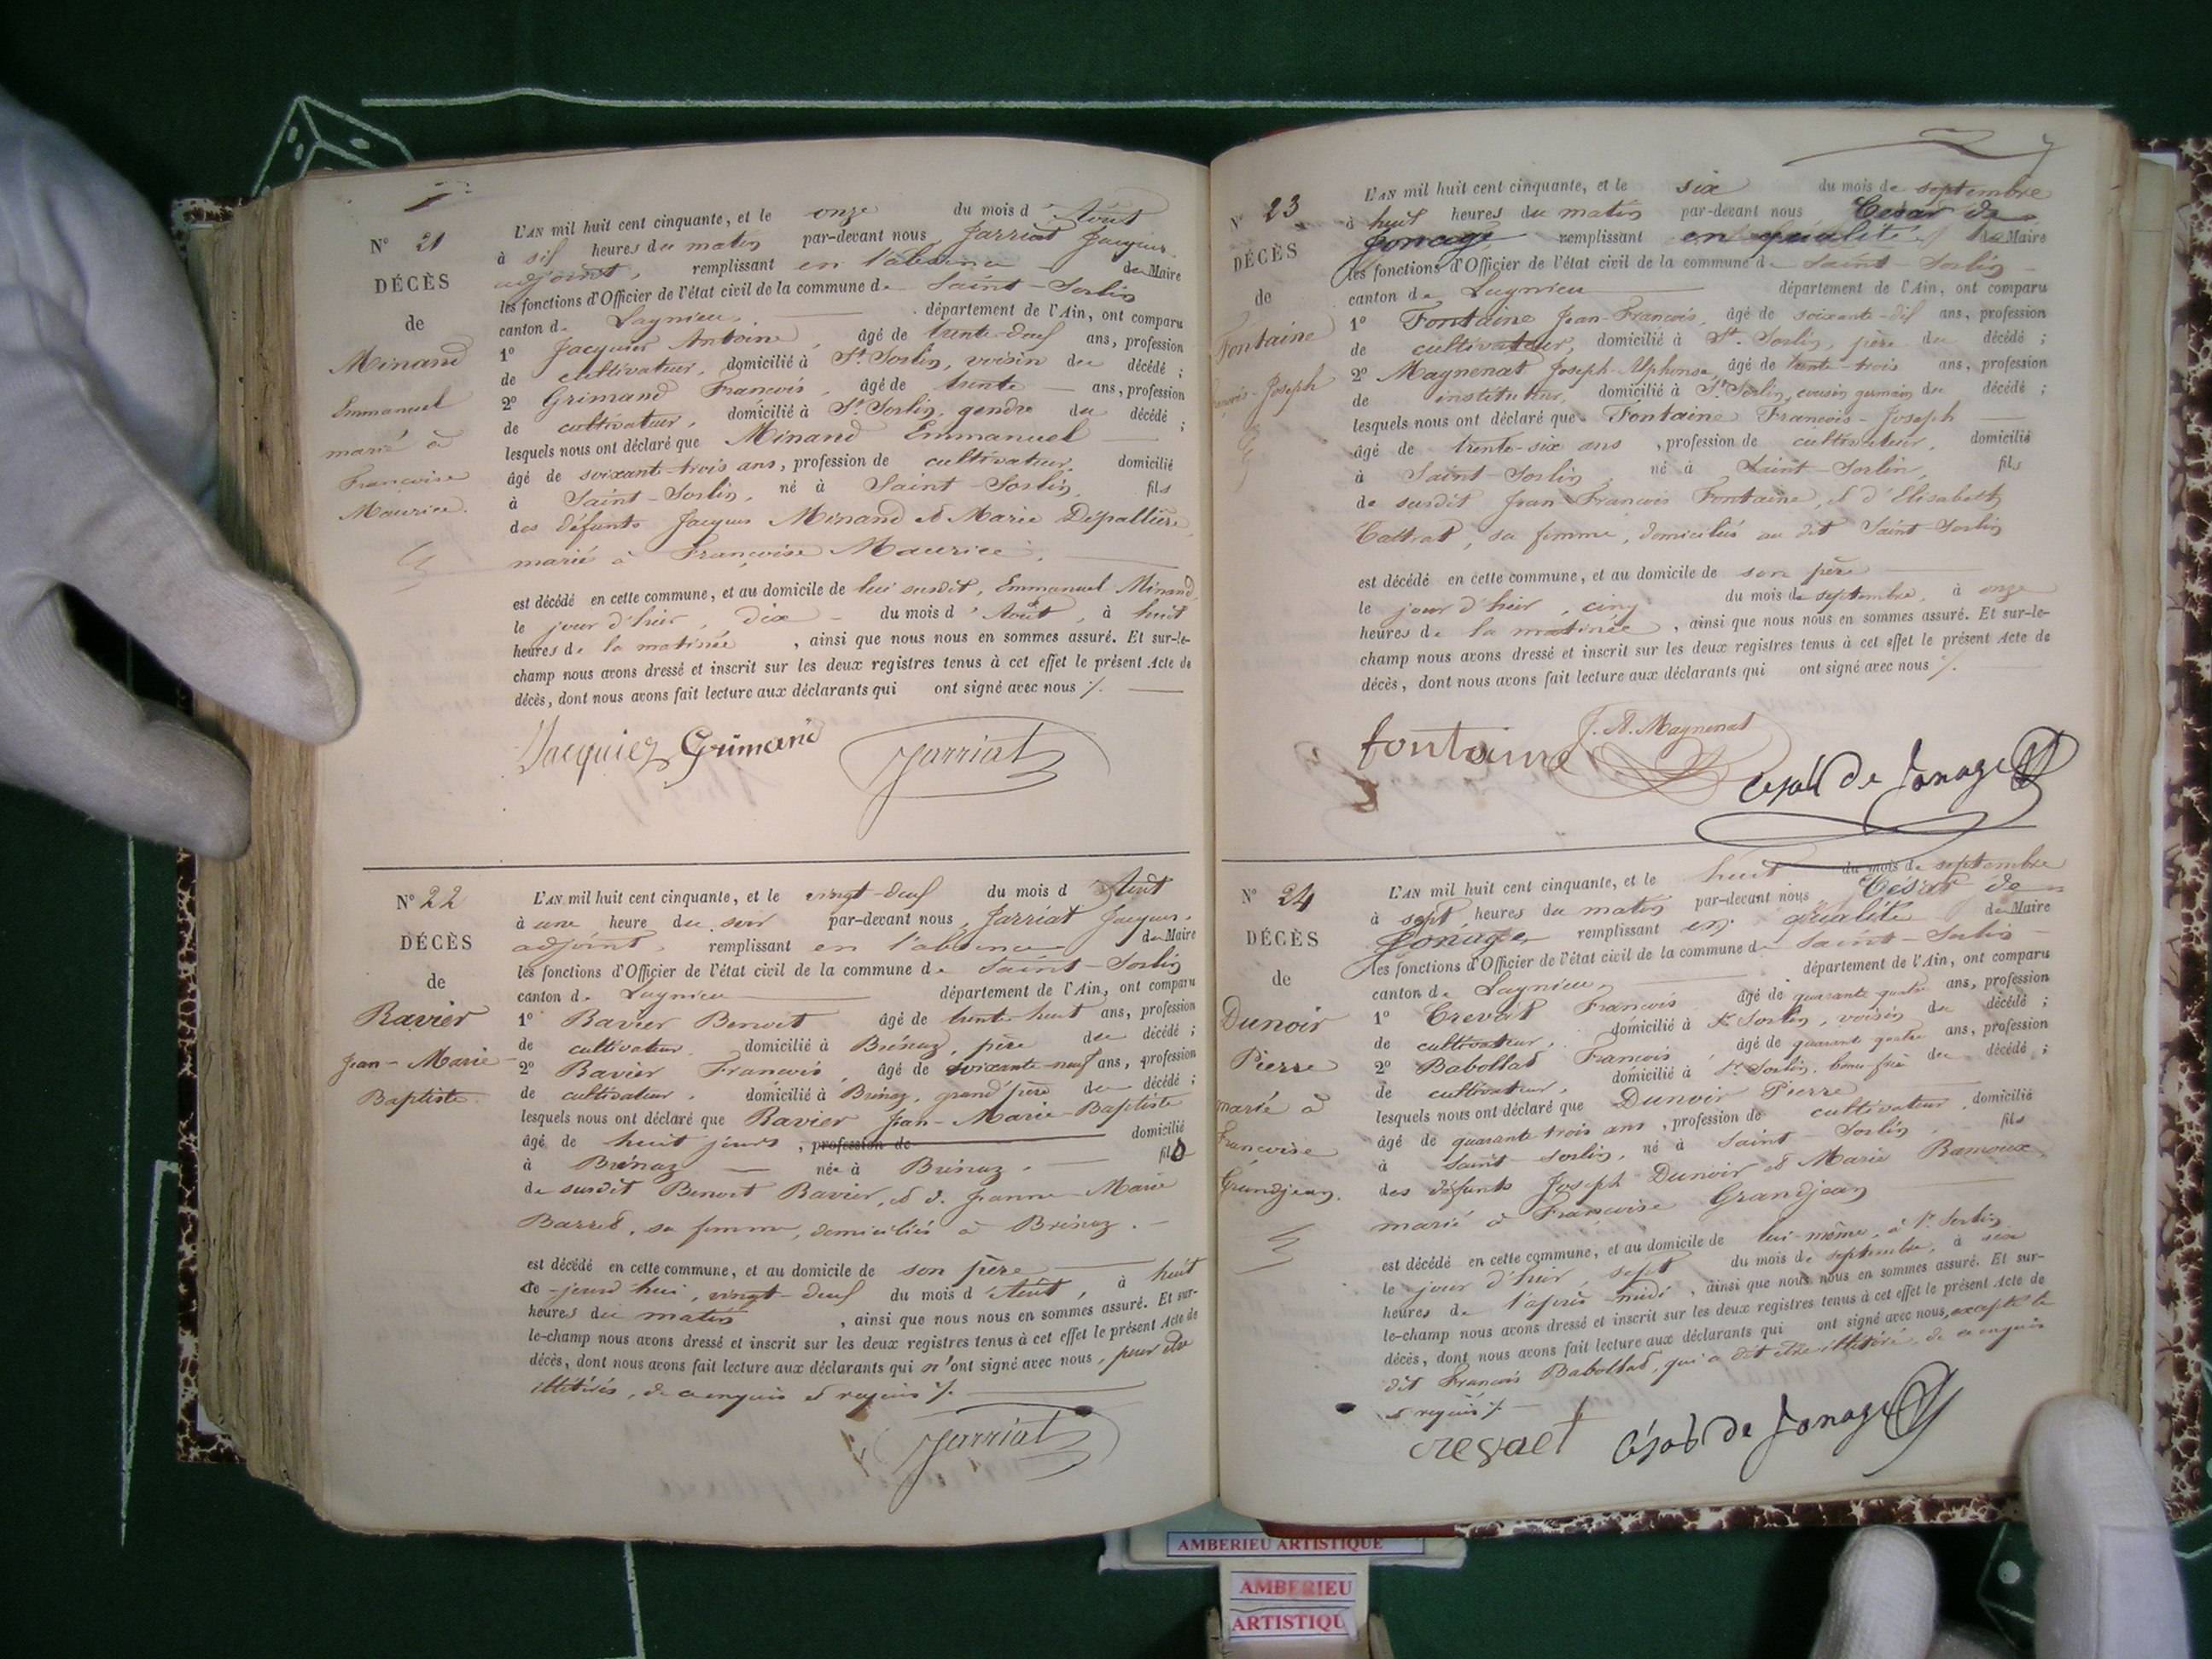 N° 21
DÉCÈS
de
Minand
Emmanuel
marié à
Françoise
Maurice.
L'AN mil huit cent cinquante, et le onze du mois d'Août
à six heures du matin par-devant nous Jarriat Jacques
adjoint, remplissant en l'absence du Maire
les fonctions d'Officier de l'état civil de la commune de Saint-Sorlin
canton de Lagnieu département de l'Ain, ont comparu
1° Jacquier Antoine, âgé de trente-deux ans, profession
de cultivateur, domicilié à St Sorlin, voisin du décédé;
2° Grimand François, âgé de trente ans, profession
de cultivateur, domicilié à St Sorlin, gendre du décédé;
lesquels nous ont déclaré que Minand Emmanuel
âgé de soixante-trois ans, profession de cultivateur, domicilié
à Saint-Sorlin, né à Saint-Sorlin, fils
des défunts Jacques Minand et Marie Dépallière,
marié à Françoise Maurice,
est décédé en cette commune, et au domicile de lui susdit, Emmanuel Minand,
le jour d'hier, dix du mois d'Août, à huit
heures de la matinée, ainsi que nous nous en sommes assuré. Et sur-le-
champ nous avons dressé et inscrit sur les deux registres tenus à cet effet le présent Acte de
décès, dont nous avons fait lecture aux déclarants qui ont signé avec nous ./.
Jacquier Grimand Jarriat
N° 22
DÉCÈS
de
Ravier
Jean-Marie-
Baptiste.
L'AN mil huit cent cinquante, et le vingt-deux du mois d'Août
à une heure du soir par-devant nous Jarriat Jacques,
adjoint, remplissant en l'absence du Maire
les fonctions d'Officier de l'état civil de la commune de Saint-Sorlin
canton de Lagnieu département de l'Ain, ont comparu
1° Ravier Benoit âgé de trente-huit ans, profession
de cultivateur domicilié à Brénaz, père du décédé;
2° Ravier François, âgé de soixante-neuf ans, profession
de cultivateur, domicilié à Brénaz, grand'père du décédé;
lesquels nous ont déclaré que Ravier Jean-Marie-Baptiste
âgé de huit jours, profession de domicilié
à Brénaz né à Brénaz, fils
de susdit Benoit Ravier, et d. Jeanne-Marie
Barret, sa femme, domiciliés à Brénaz.
est décédé en cette commune, et au domicile de son père
ce-jourd'hui, vingt-deux du mois d'Août, à huit
heures du matin, ainsi que nous nous en sommes assuré. Et sur-
le-champ nous avons dressé et inscrit sur les deux registres tenus à cet effet le présent Acte de
décès, dont nous avons fait lecture aux déclarants qui n'ont signé avec nous, pour être
illitérés, de ce enquis et requis ./.
Jarriat
N° 23
DÉCÈS
de
Fontaine
François-Joseph
L'AN mil huit cent cinquante, et le six du mois de septembre
à huit heures du matin par-devant nous César de
Jonage remplissant en qualité de Maire
les fonctions d'Officier de l'état civil de la commune de Saint-Sorlin
canton de Lagnieu département de l'Ain, ont comparu
1° Fontaine Jean-François, âgé de soixante-dix ans, profession
de cultivateur, domicilié à St. Sorlin, père du décédé;
2° Magnenat Joseph-Alphonse, âgé de trente-trois ans, profession
de instituteur, domicilié à St Sorlin, cousin germain du décédé;
lesquels nous ont déclaré que Fontaine François-Joseph
âgé de trente-six ans, profession de cultivateur, domicilié
à Saint-Sorlin, né à Saint-Sorlin, fils
de susdit Jean-François Fontaine, et d'Elisabeth
Cattrat, sa femme, domiciliés au dit Saint-Sorlin
est décédé en cette commune, et au domicile de son père
le jour d'hier, cinq du mois de septembre, à onze
heures de la matinée, ainsi que nous nous en sommes assuré. Et sur-le-
champ nous avons dressé et inscrit sur les deux registres tenus à cet effet le présent Acte de
décès, dont nous avons fait lecture aux déclarants qui ont signé avec nous ./.
fontaine J. A. Magnenat César de Jonage
N° 24
DÉCÈS
de
Dunoir
Pierre
marié à
Françoise
Grandjean.
L'AN mil huit cent cinquante, et le huit du mois de septembre
à sept heures du matin par-devant nous César de
Jonage remplissant en qualité de Maire
les fonctions d'Officier de l'état civil de la commune de Saint-Sorlin
canton de Lagnieu, département de l'Ain, ont comparu
1° Crevat François âgé de quarante quatre ans, profession
de cultivateur, domicilié à St Sorlin, voisin du décédé;
2° Babollat François, âgé de quarante quatre ans, profession
de cultivateur, domicilié à St Sorlin, beau-frère du décédé;
lesquels nous ont déclaré que Dunoir Pierre
âgé de quarante trois ans, profession de cultivateur, domicilié
à Saint-Sorlin, né à Saint-Sorlin, fils
des défunts Joseph Dunoir et Marie Ramoux,
marié à Françoise Grandjean
est décédé en cette commune, et au domicile de lui-même, à St. Sorlin
le jour d'hier, sept du mois de septembre, à six
heures de l'après midi, ainsi que nous nous en sommes assuré. Et sur-
le-champ nous avons dressé et inscrit sur les deux registres tenus à cet effet le présent Acte de
décès, dont nous avons fait lecture aux déclarants qui ont signé avec nous, excepté le
dit François Babollat, qui a dit être illitéré, de ce enquis
et requis ./.
crevaet César de Jonage
AMBERIEU ARTISTIQUE
AMBERIEU
ARTISTIQU